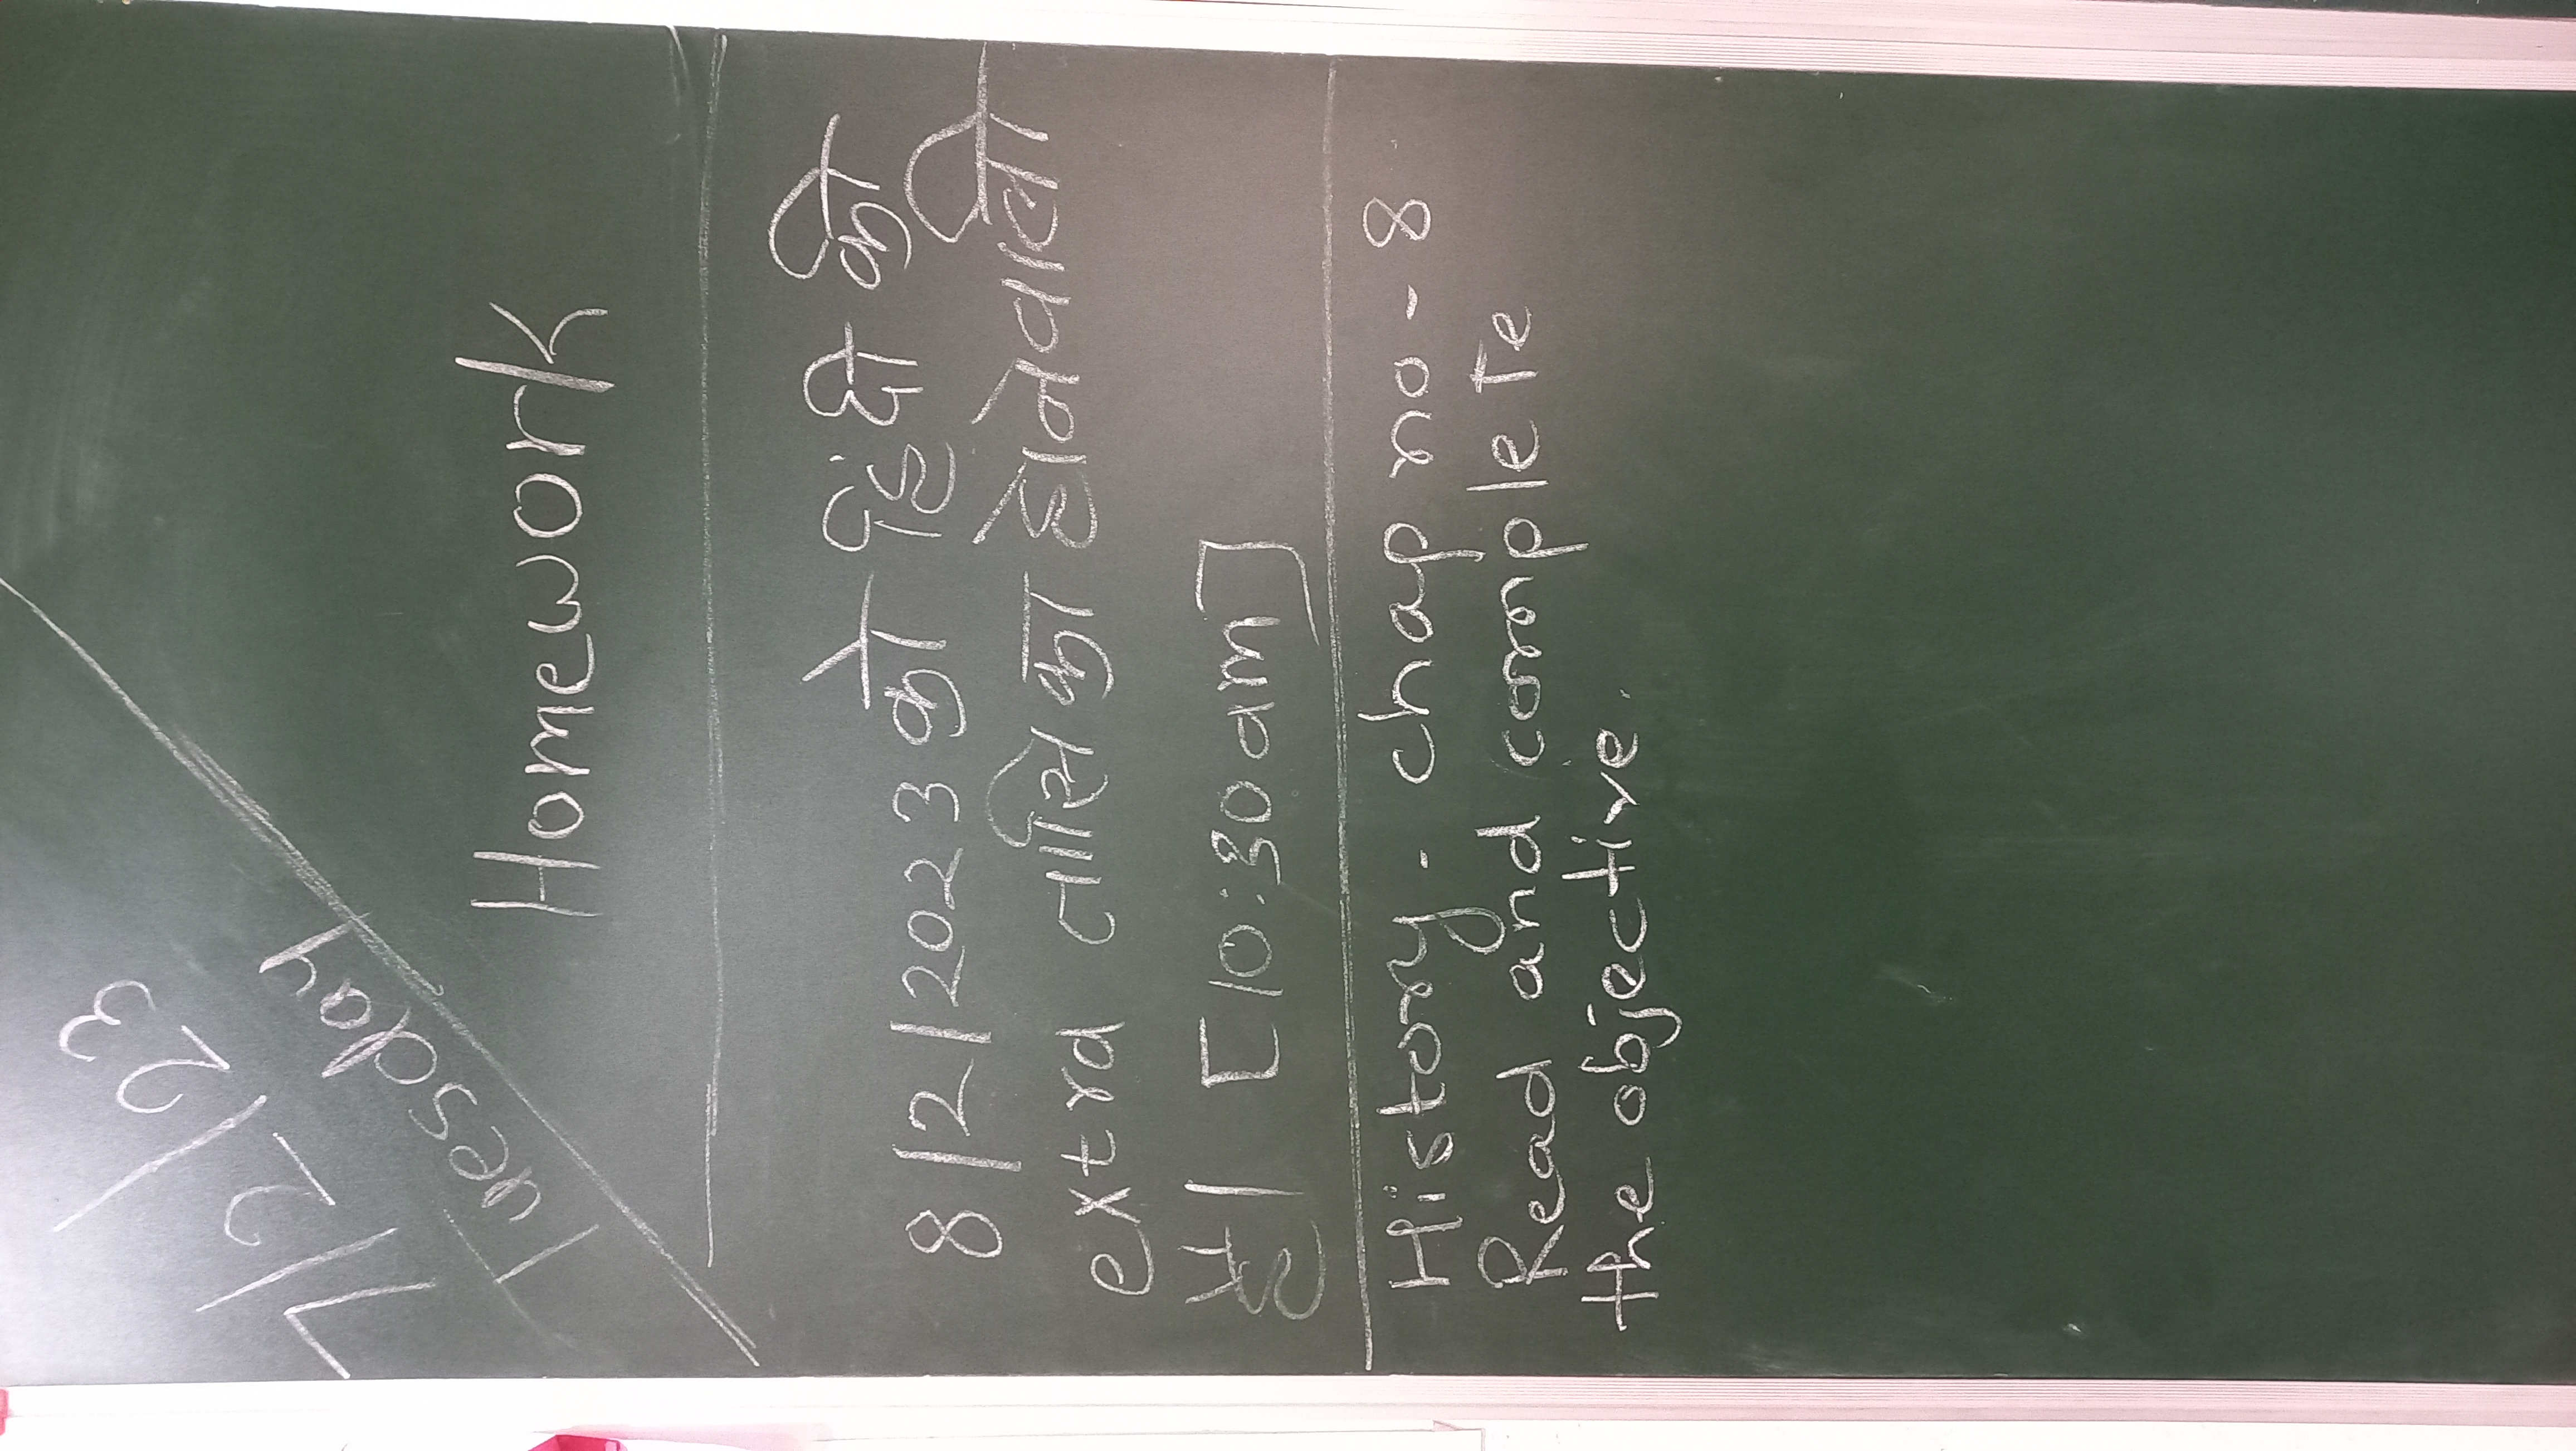 7/2/23
Tuesday
Homework
8/2/2023 को हिंदी की
extra तासिका होनेवाली
है। [10:30am]
History - chap no - 8
Read and complete
the objective.